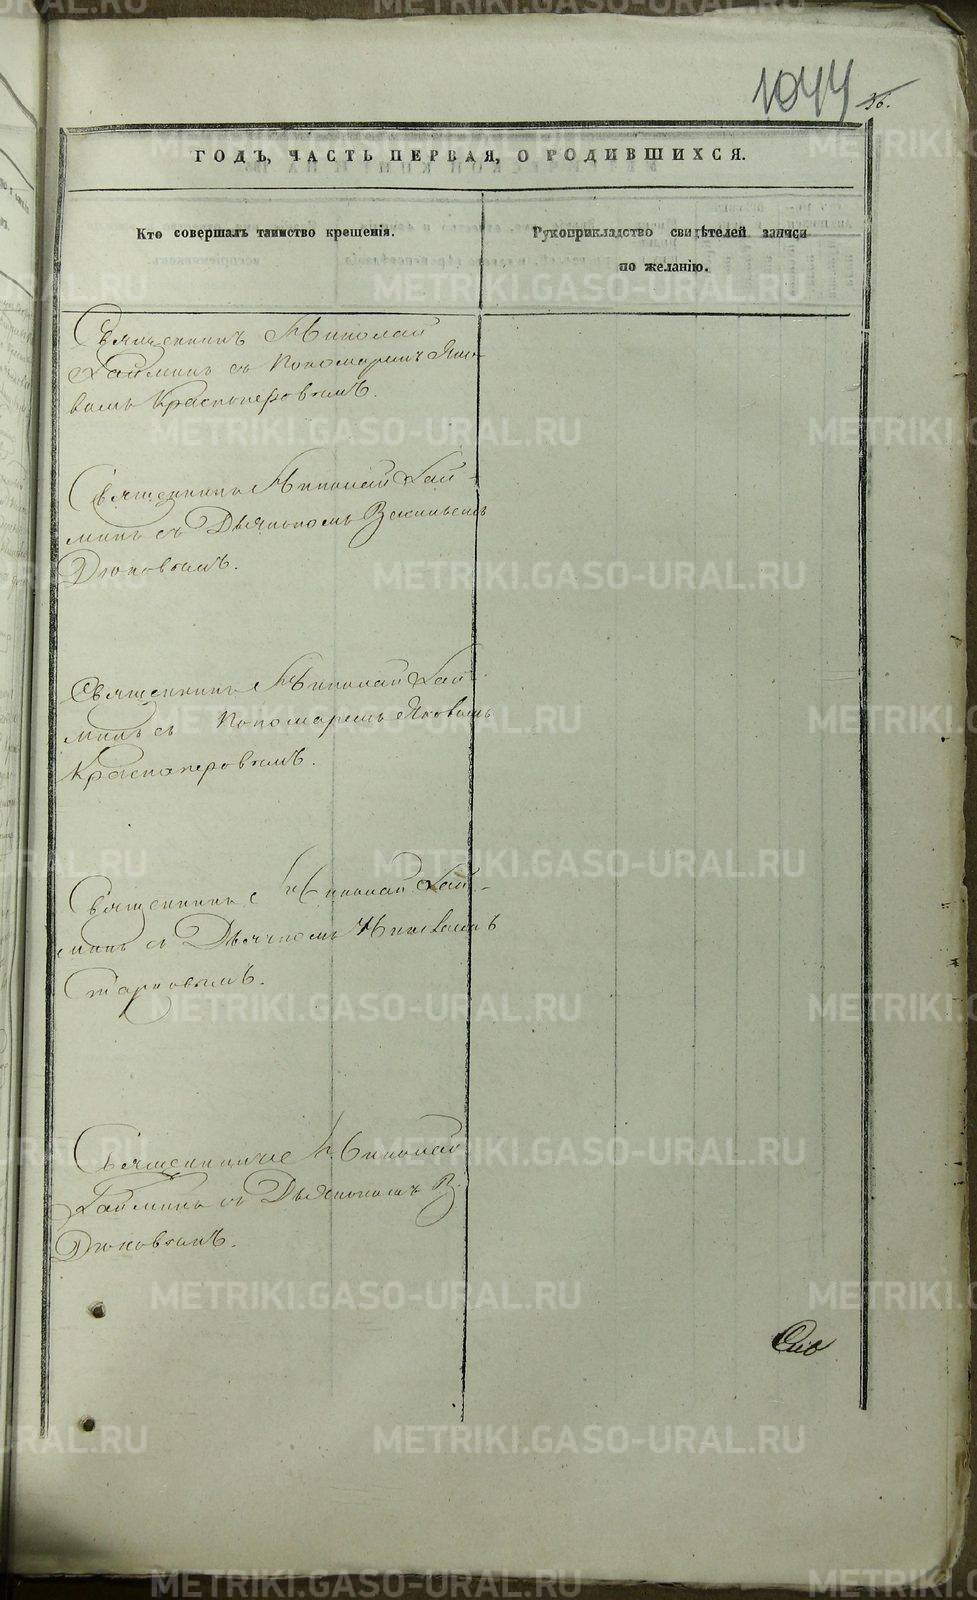 1044
36.
ГОДЪ, ЧАСТЬ ПЕРВАЯ, О РОДИВШИХСЯ.
Кто совершалъ таинство крещенія.
Рукоприкладство свидѣтелей записи
по желанію.
Священникъ Николай
Гайминъ съ Пономаремъ Яко-
вомъ Красноперовымъ.
Священникъ Николай Гай-
минъ съ Дьячкомъ Васильемъ
Дюковымъ.
Священникъ Николай Гай
минъ съ Пономаремъ Яковомъ
Красноперовымъ.
Священникъ Николай Гай-
минъ съ Дьячкомъ
Священникъ Николай
Гайминъ съ Дьячкомъ В.
Дюковымъ.
METRIKI.GASO-URAL.RU